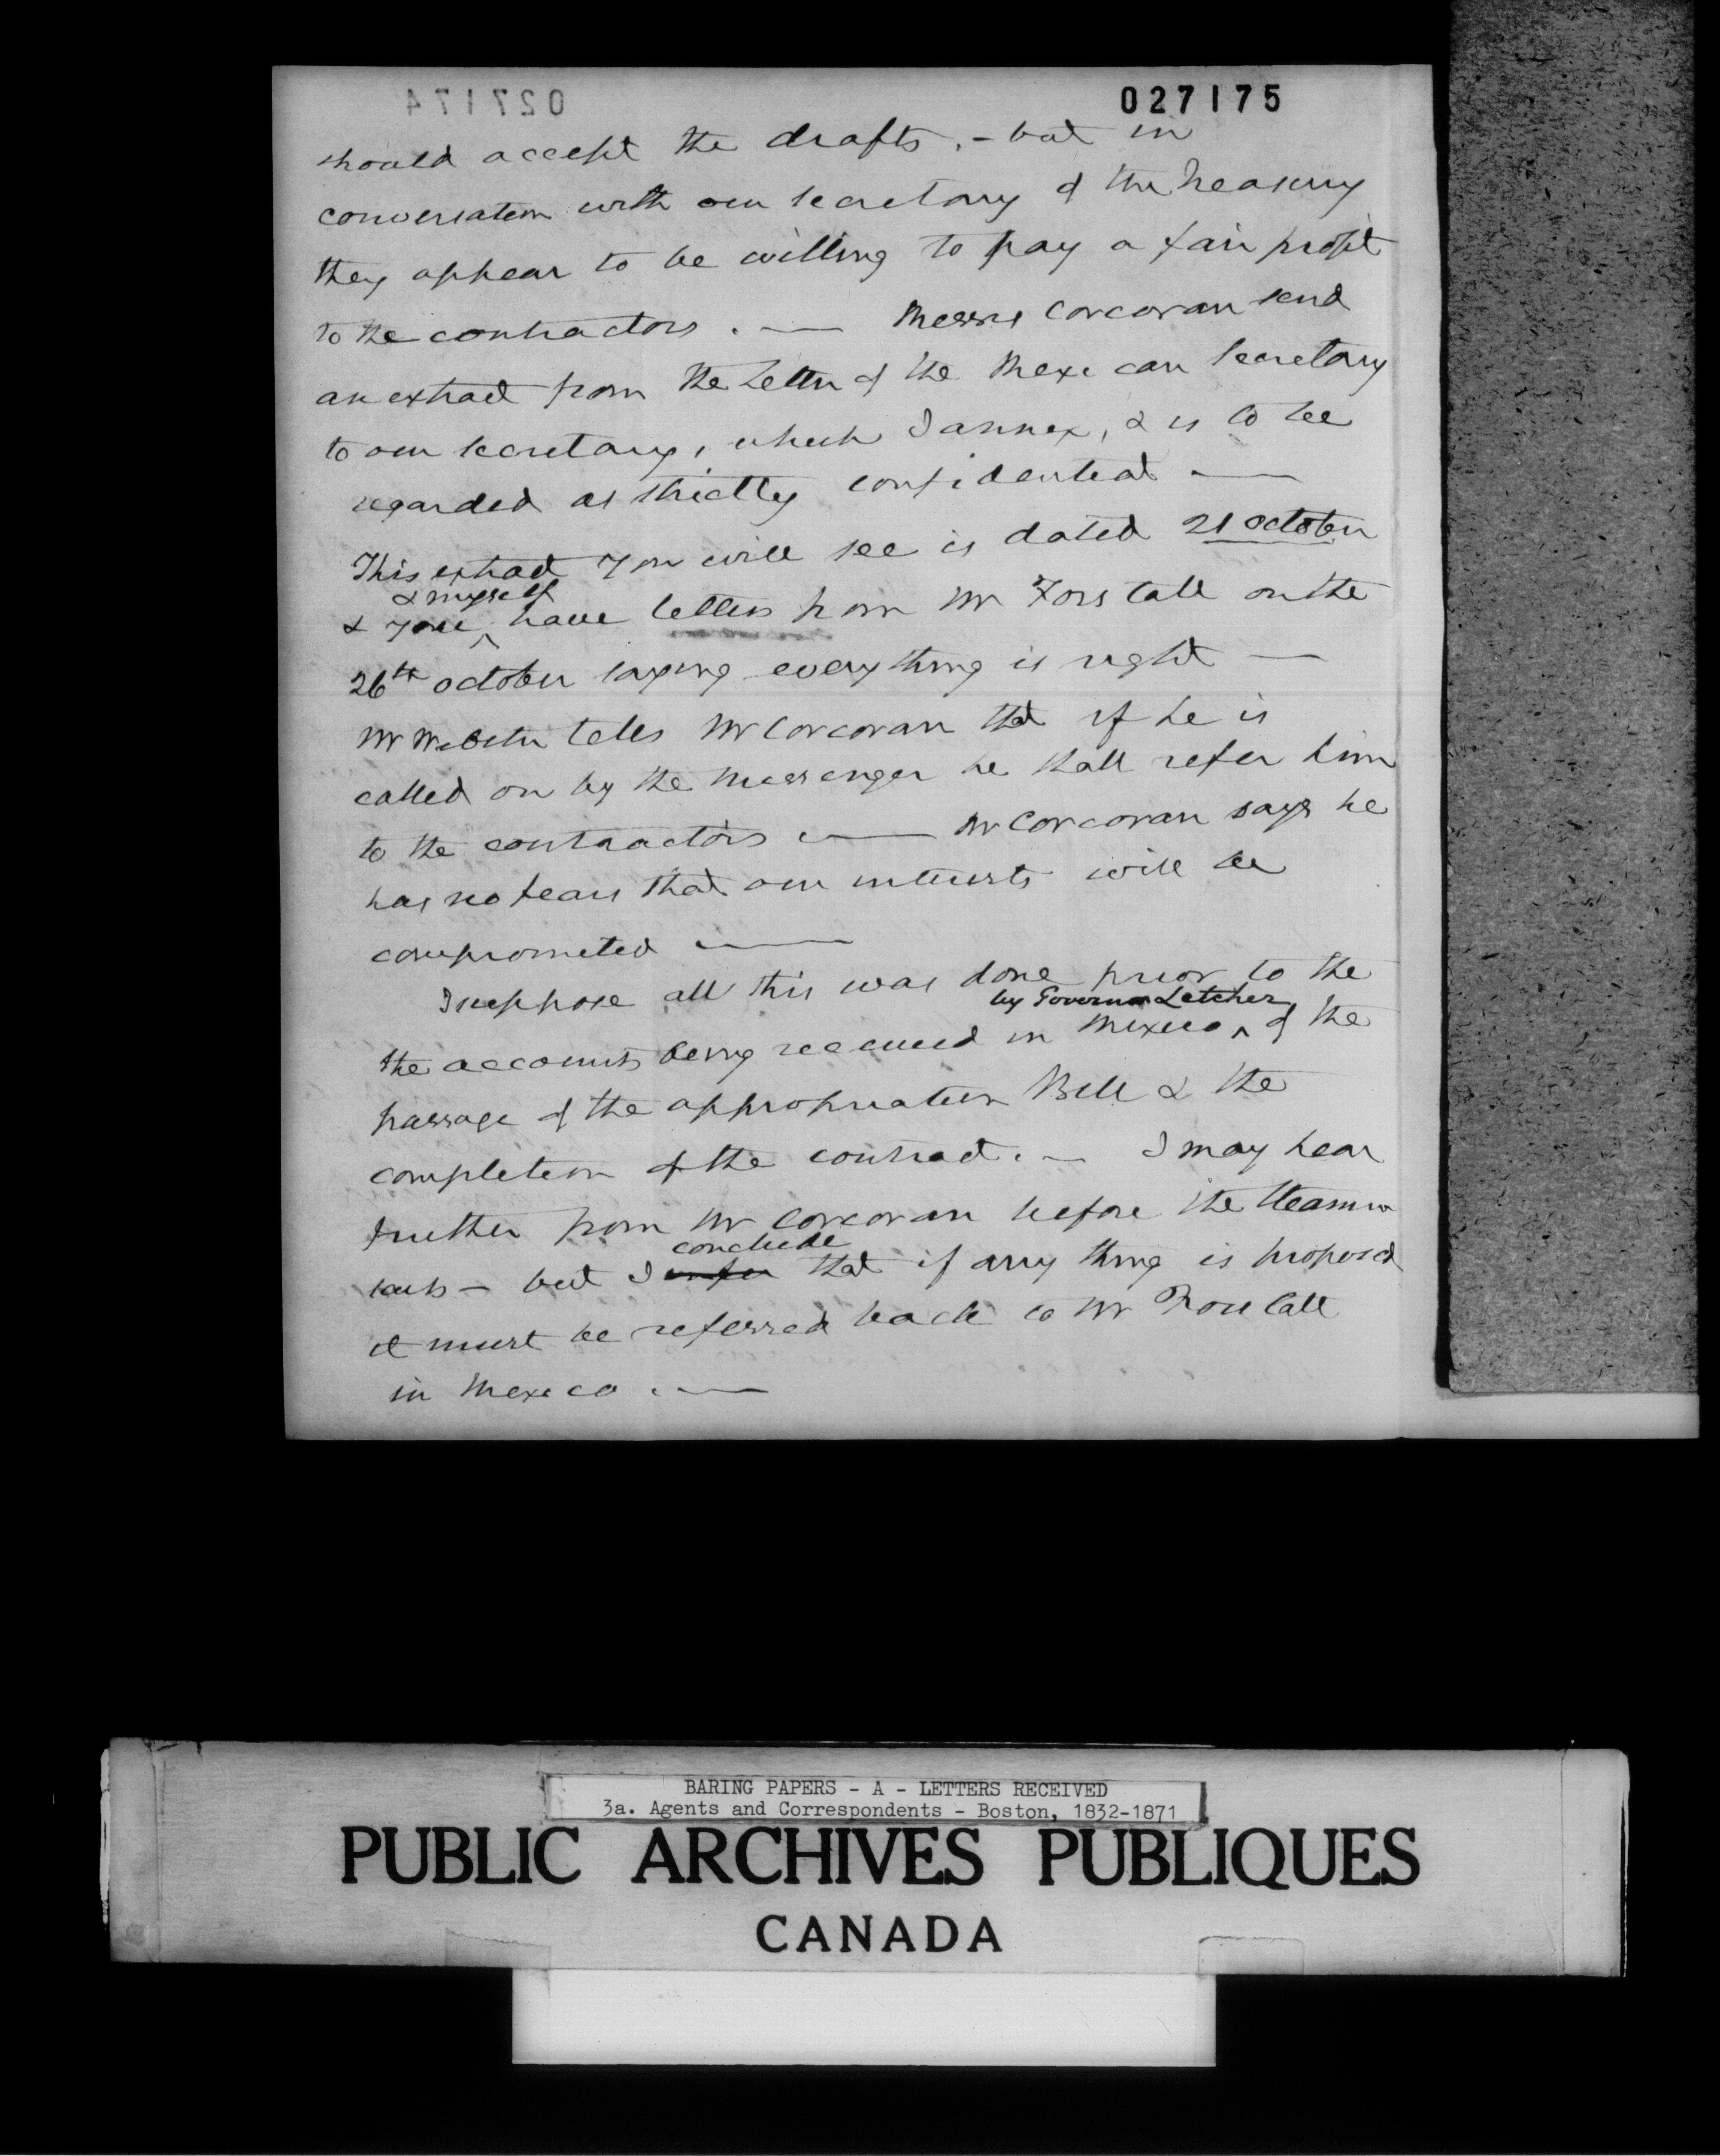 027174
027175
should accept the drafts. - but in
conversation with our Secretary of the Treasury
they appear to be willing to pay a fair profit
to the contractors. — Messrs Corcoran send
an extract from the Letter of the Mexican Secretary
to our Secretary, which I annex, & is to be
regarded as strictly confidential —
This extract you will see is dated 21 October
& myself
& you ^ have letters from Mr Forstall on the
26th October saying every thing is right —
Mr Webster tells Mr Corcoran that if he is
called on by the Messenger he shall refer him
to the contractors — Mr Corcoran says he
has no fears that our interests will be
compromited —
I suppose all this was done prior to the
by Governor Letcher
the accounts being received in Mexico ^ of the
passage of the appropriation Bill & the
completion of the contract. — I may hear
further from Mr Corcoran before the Steamer
conclude
sails — but I infer that if any thing is proposed
it must be referred back to Mr Forstall
in Mexico. —
BARING PAPERS - A - LETTERS RECEIVED
3a. Agents and Correspondents - Boston, 1832-1871
PUBLIC ARCHIVES PUBLIQUES
CANADA